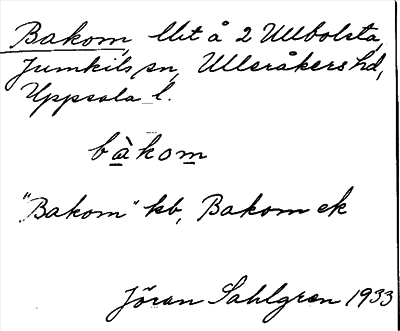 Bakom, lht å 2 Ullbolsta,
Jumkils sn, Ulleråkers hd,
Uppsala l.
bàkom
"Bakom" kb, Bakom ek
Jöran Sahlgren 1933